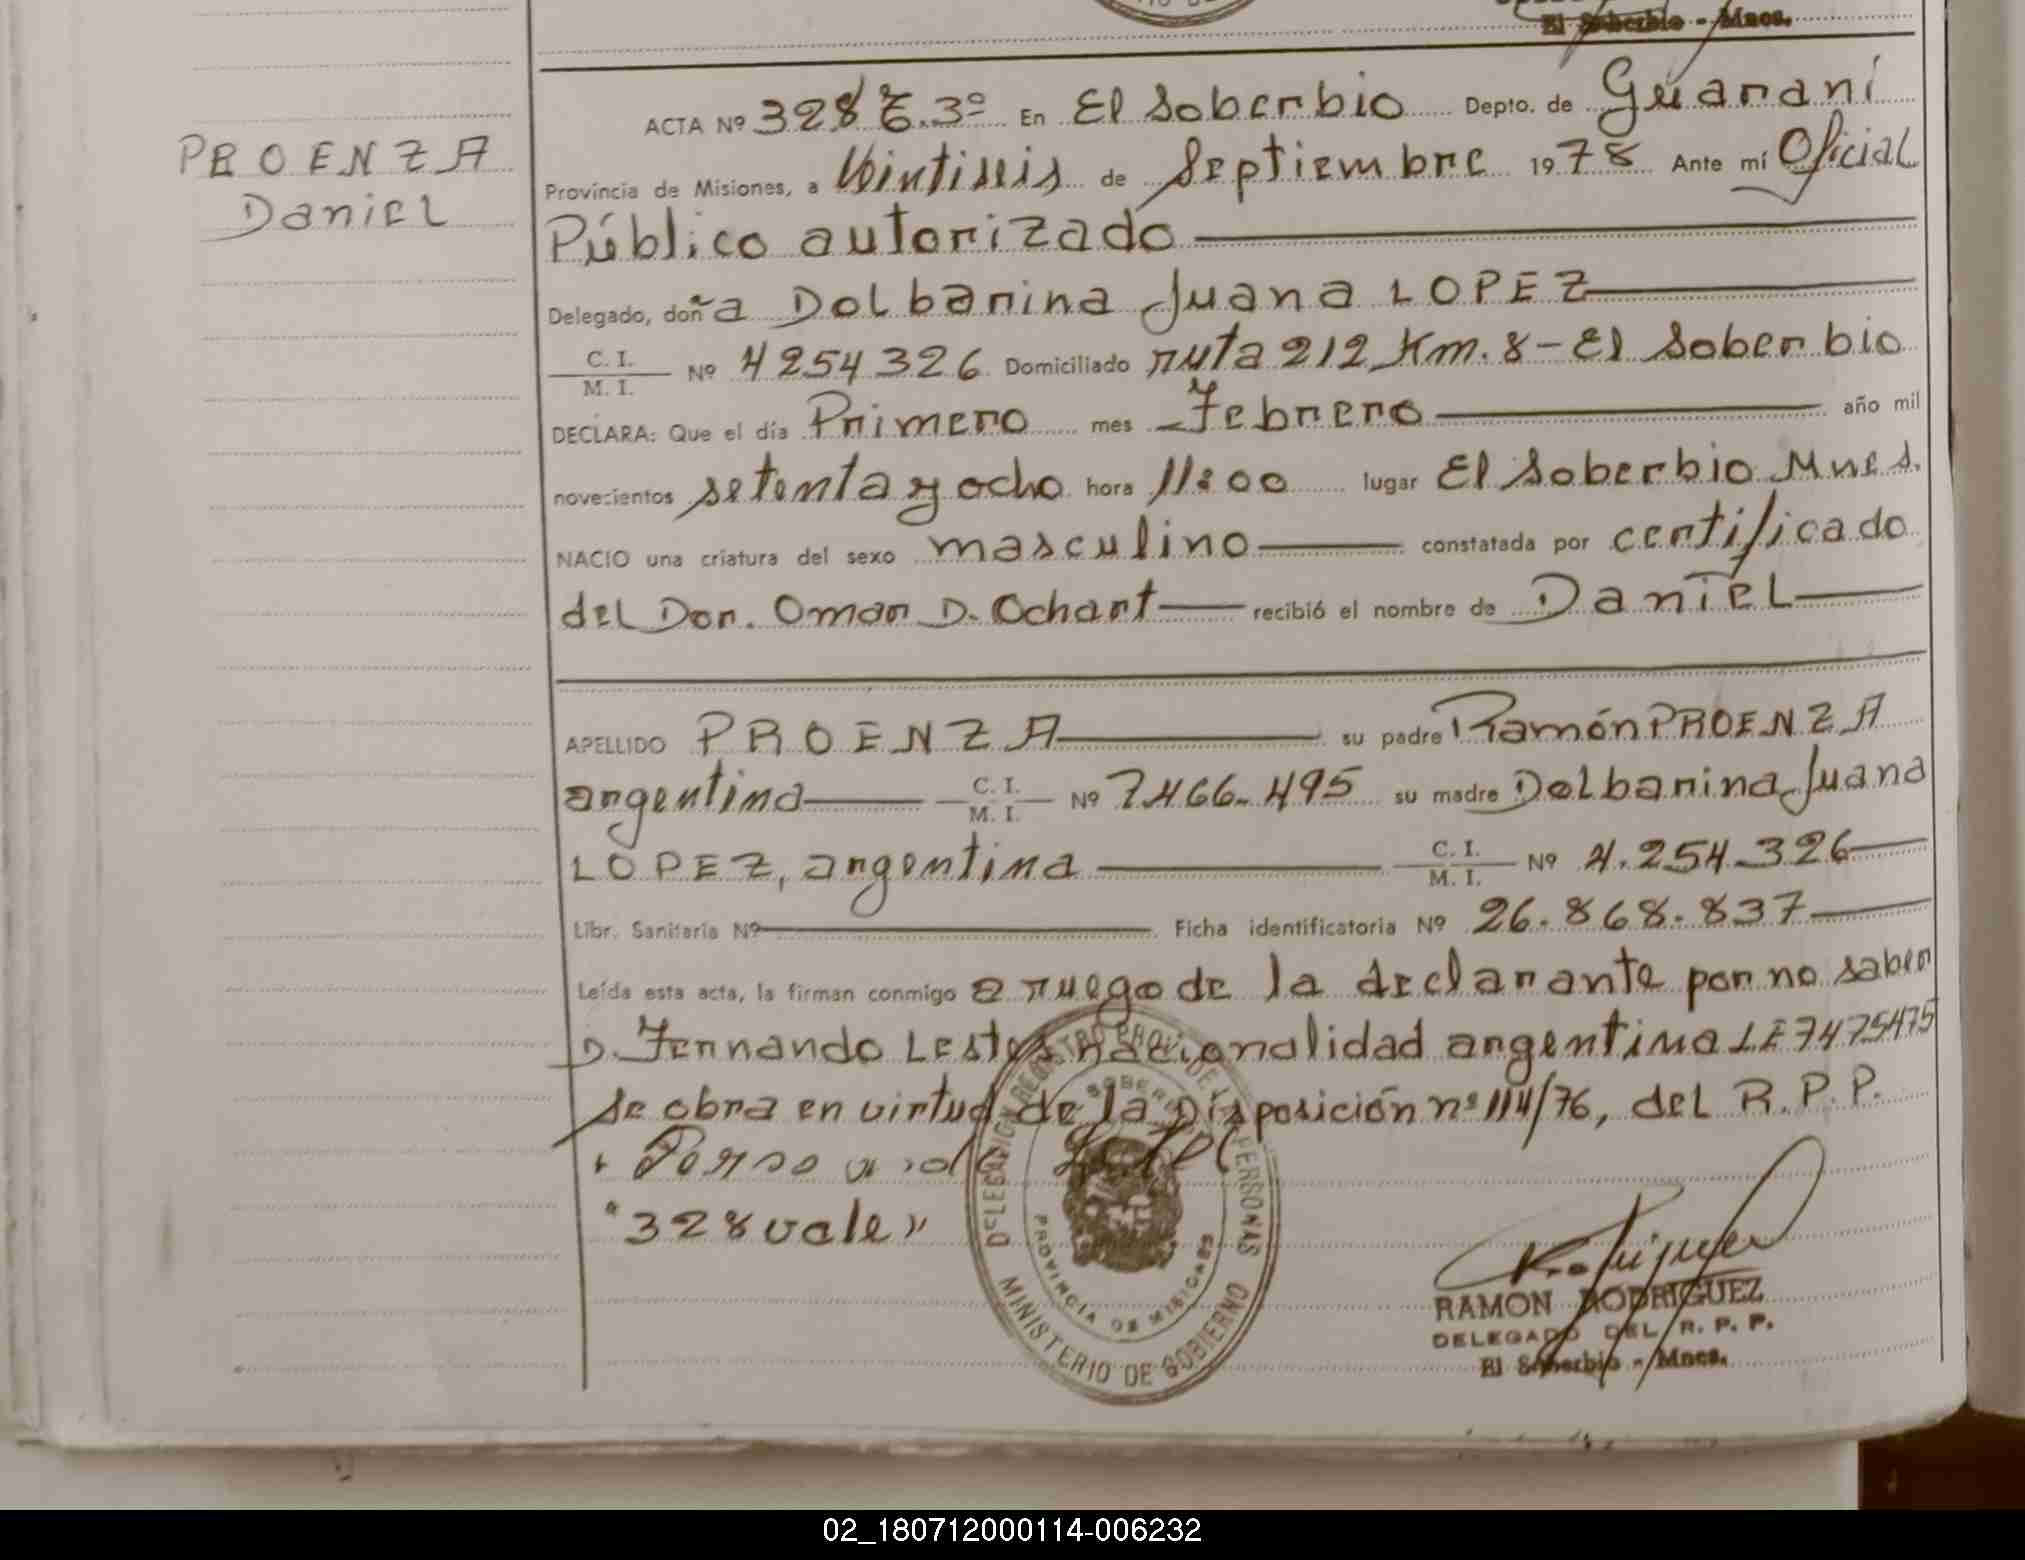 El Soberbio - Mnes.
PROENZA
Daniel
ACTA Nº 328 T.3º En El Soberbio Depto. de Guaraní
Provincia de Misiones, a Vintiseis de Septiembre 1978 Ante mí Oficial
Público autorizado
Delegado, doña Dolbarina Juana LOPEZ
C. I.
M. I. Nº 4254326 Domiciliado ruta 212 Km. 8 - El Soberbio
DECLARA: Que el día Primero mes Febrero año mil
novecientos setenta y ocho hora 11:00 lugar El Soberbio Mnes.
NACIO una criatura del sexo masculino constatada por certificado
del Dor. Omar D. Ochart recibió el nombre de Daniel
APELLIDO PROENZA su padre Ramón PROENZA
argentina C. I. M. I. Nº 7.466.495 su madre Dolbarina Juana
LOPEZ, argentina C. I. M. I. Nº 4.254.326
Libr. Sanitaria Nº Ficha identificatoria Nº 26.868.837
Leída esta acta, la firman conmigo a ruego de la declarante por no saber
D. Fernando Lestes nacionalidad argentina LE 7475475
se obra en virtud de la Disposición nº 114/76, del R.P.P.
"328 vale"
DELEGACION REGISTRO PROV. DE LAS PERSONAS
SOBERBIO
PROVINCIA DE MISIONES
MINISTERIO DE GOBIERNO
RAMON RODRIGUEZ
DELEGADO DEL R. P. P.
El Soberbio - Mnes.
02_180712000114-006232